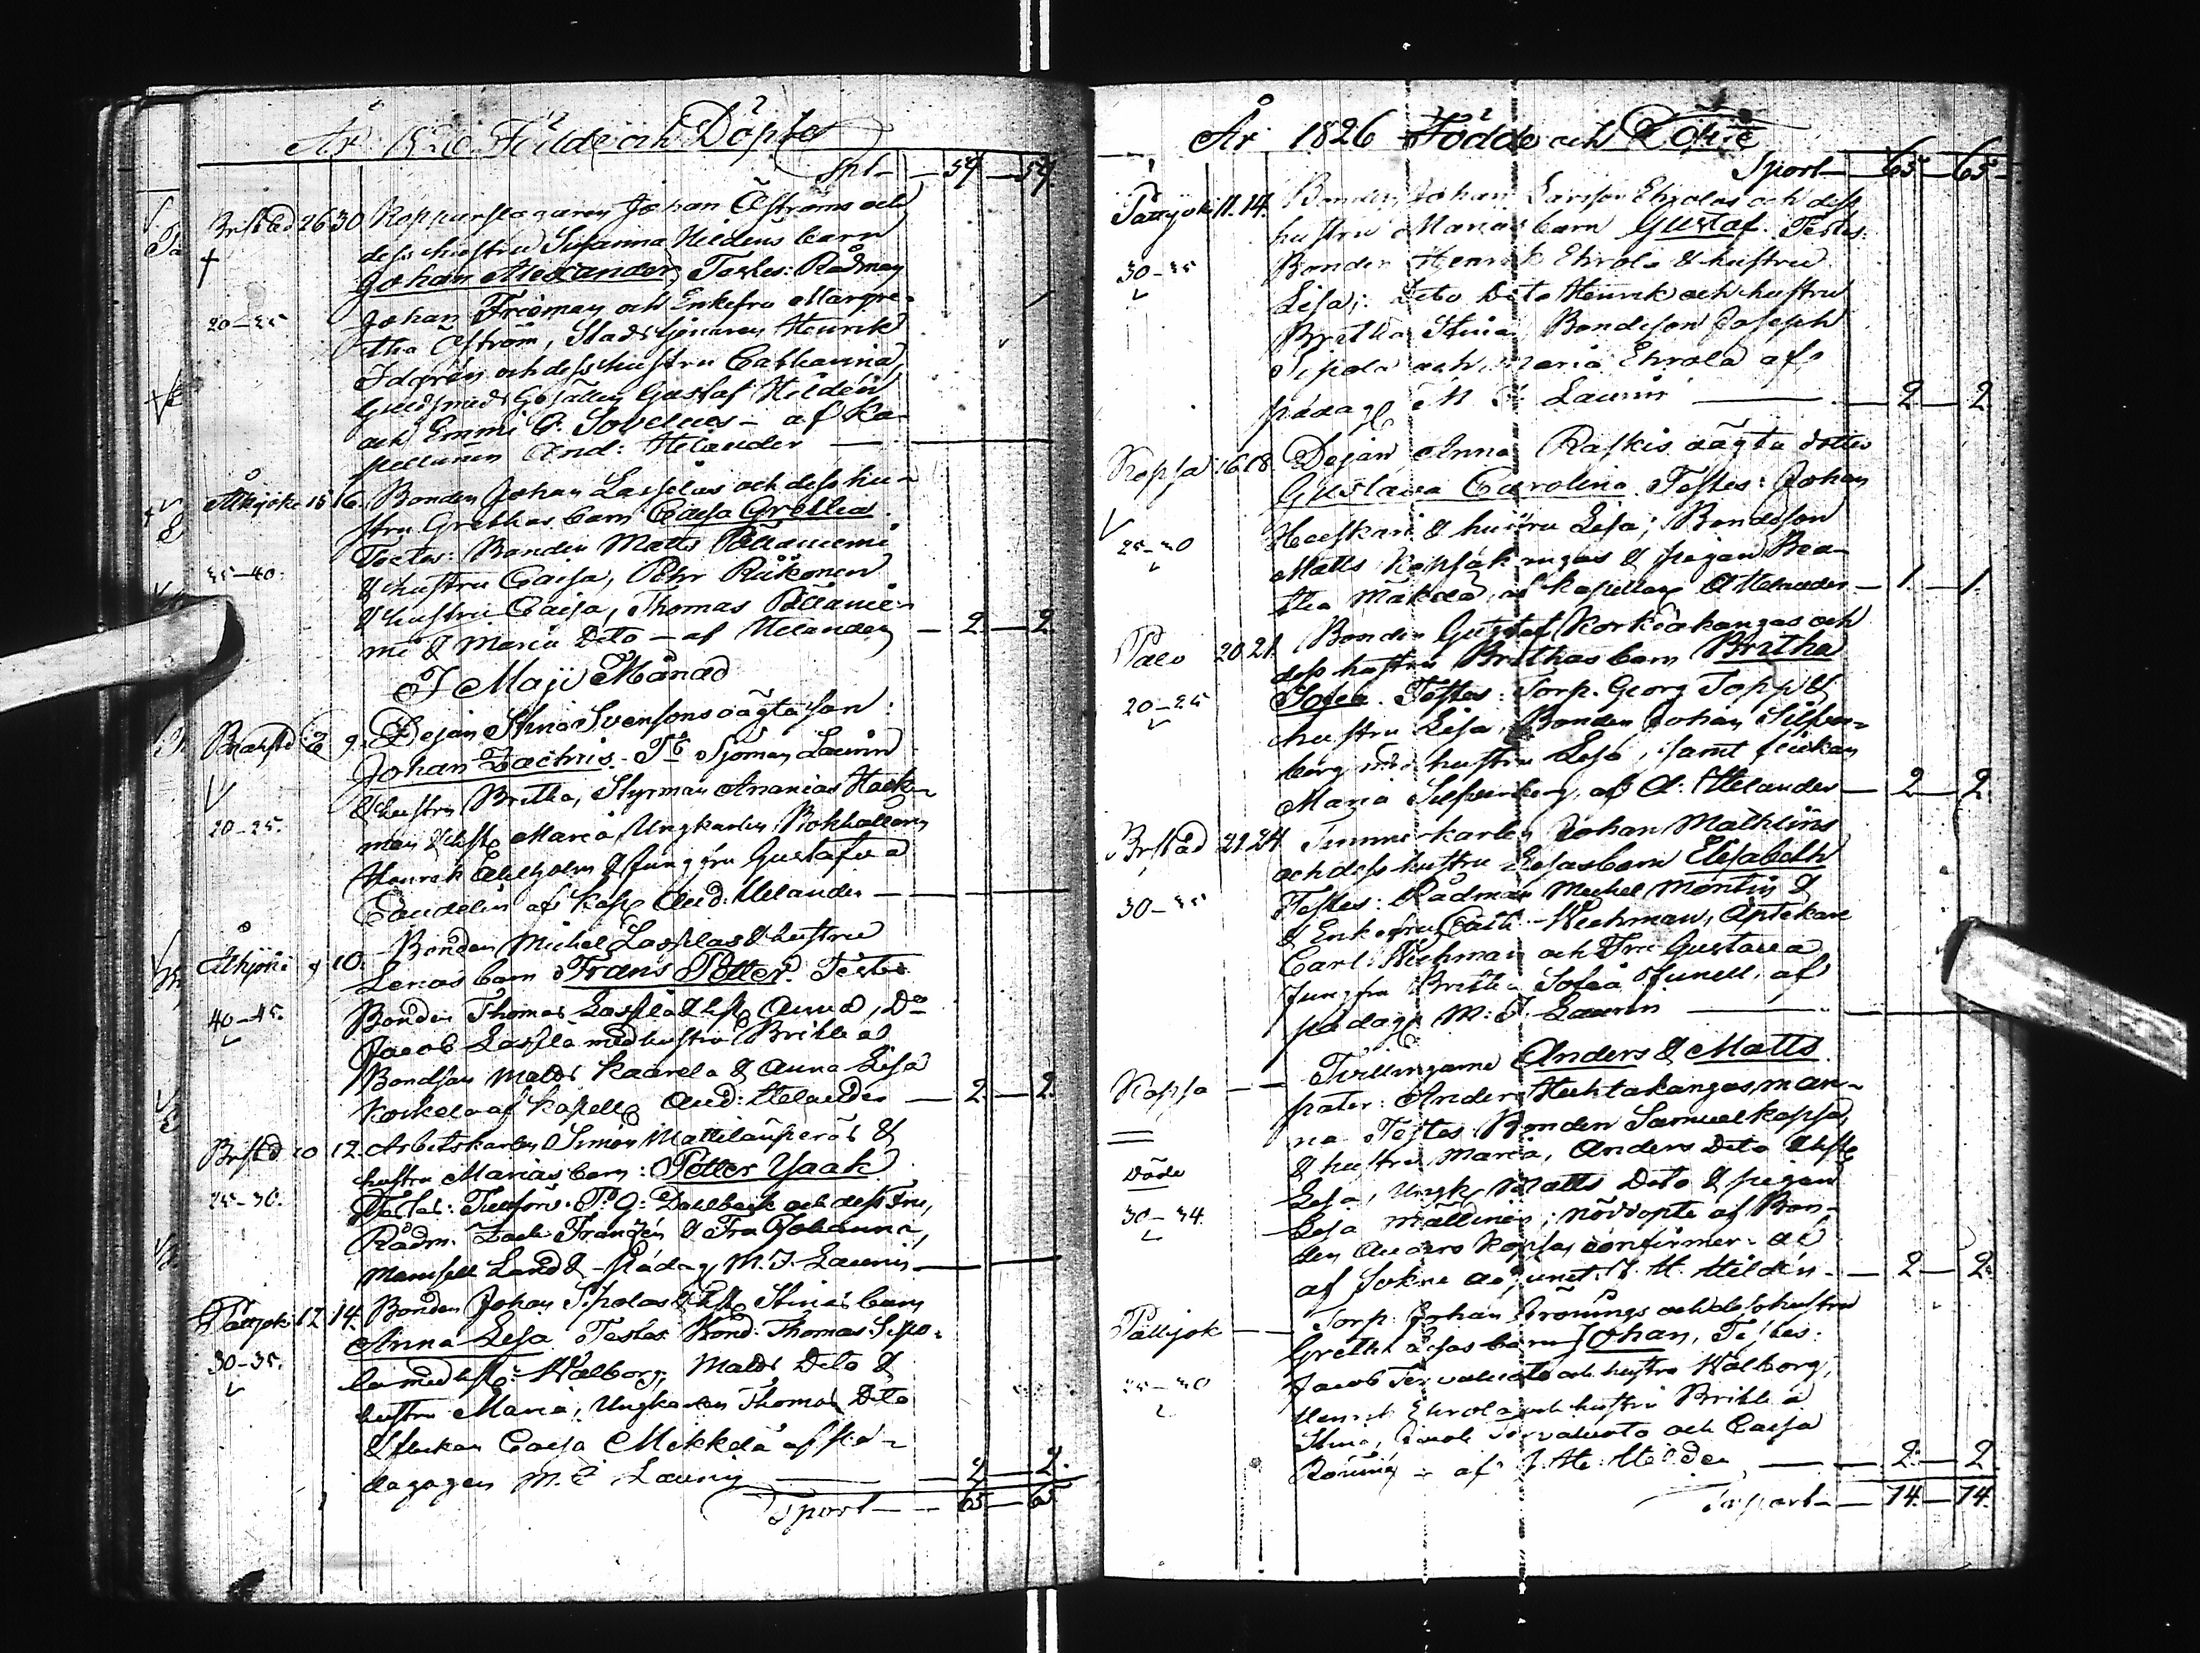 År 1826 Födde och Döpte
Spt — 59 — 59.
Brstad 26 30 Kopparslagaren Johan Åströms och
dess hustru Susanna Hildens barn
Johan Alexander, Testes: Rådman
20–25 Johan Frieman och Enkefru Margre-
tha Åström, Henrik
och dess hustru Catharina,
Gesällen Gustaf Hildén
och Emmi C. Sovelius – af Ka-
pellanen And: Helander —
15 16. Bonden Johan Lassilas och dess hu-
stru Grethas barn Caisa Gretha.
Testes: Bonden Matts Pöllänemi
35–40. & hustru Caisa, Pehr Räikönen
& hustru Caisa, Thomas Pöllänie-
mi & Maria Dito – af Helander — 2. — 2.
I Maji Månad
Brahestd 9. Pejan Stina Svensons oägta son:
Johan Zachris. Ts Sjöman Laurin
& hustru Britha, Styrman Ananias Hack-
20–25. man & hst Maria, Ungkarlen Bokhållaren
Henrik & Jungfru Gustafva
af Kapl And: Helander —
9 10. Bonden Michel Lassilas & hustru
Lenas barn Frans Petter. Testes
40–45. Bonden Thomas Lassila & hst Anna, Do
Jacob Lassila med hustru Britha
Bondson Matts Kaarela & Anna Lisa
Korkela af Kapell And: Helander — 2. — 2.
Brstd 10 12. Arbetskarlen Simon Mattilanperäs &
hustru Marias barn: Petter Isaak
25–30. Testes: P. G. Dahlback och dess Fru,
Rådm. Zach: Franzén & Fru Johanna,
Mamsell Pädag M. J. Laurin —
Pattjok 12 14. Bonden Johan Sipolas & hst Stinas barn
Anna Lisa Testes Bond: Thomas Sipo-
30–35. la med hst: Walborg, Matts Dito &
hustru Maria, Ungkarlen Thomas Dito
& flickan Caisa Mikkola af Pä-
dagogen M. J. Laurin — 2 — 2.
Tport — 65 — 65
År 1826 Födde och Döpte
Sport — 65 — 65
Pattjok 11. 14. Bonden Johan Larsson Ehrolas och dess
hustru Marias barn Gustaf. Testes:
30–35 Bonden Henrik Ehrola & hustru
Lisa; Dito Dito Henrik och hustru
Britha Stina, Bondeson Joseph
Sipola och Maria Ehrola af
pädag M. J. Laurin — 2 — 2
Kopsa 16 18. Pejan Anna Raskis oägta dotter
Gustava Carolina. Testes: Johan
25–30 & hustru Lisa; Bondson
Matts Kopsakangas & pigan Brea-
tha Mäkelä, af Kapellan A Helander — 1. — 1.
Palo 20 21. Bonden Gustaf Korkiakangas och
dess hustru Brithas barn Britha
20–25 Sofia. Testes: Torp. Georg Topp &
hustru Lisa, Bonden Johan Silfver-
berg med hustru Lisa, samt flickan
Maria Silfverberg, af A. Helander — 2 — 2.
Brstad 21 24. Timmerkarlen Johan Mathlins
och dess hustru Lisas barn Elisabeth
30–35 Testes: Rådman Michel Montin &
& Enkefru Cath: Wichman, Aptekare
Carl Wichman och Fru Gustava
Jungfru Britha Sofia Junell, af
pädag M. J. Laurin —
Kopsa — — Tvillingarne Anders & Matts.
pater: Anders Huhtakangas man-
na. Testes Bonden Samuel Kopsa,
Döde & hustru Maria, Anders Dito & hst
30–34. Lisa, Ungk Matts Dito & pigan
Lisa Mällinen; nöddöpte af Bon-
den Anders Kopsa, confirmer. at
af Sokne adjunct. Hildén — 2 — 2.
Pattijok — — Torp. Johan Brönings och dess hustru
Gretha Lisas barn Johan, Testes:
25–30 Jacob Tervaluoto och hustru Walborg,
Henrik Ehrola och hustru Britha
Stina, Jacob Tervaluoto och Caisa
Röning — af Hildén — 2. — 2
Transport — 74. — 74.